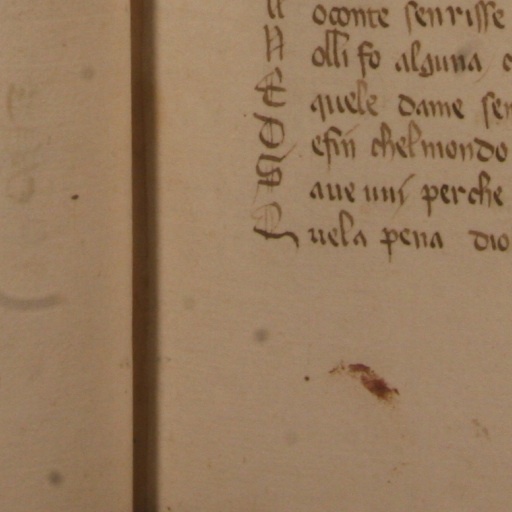 oconte senrisse
N olli fo alguna
E quele dame ser
D efin chelmondo
S ave uni perche
Q uela pena dio